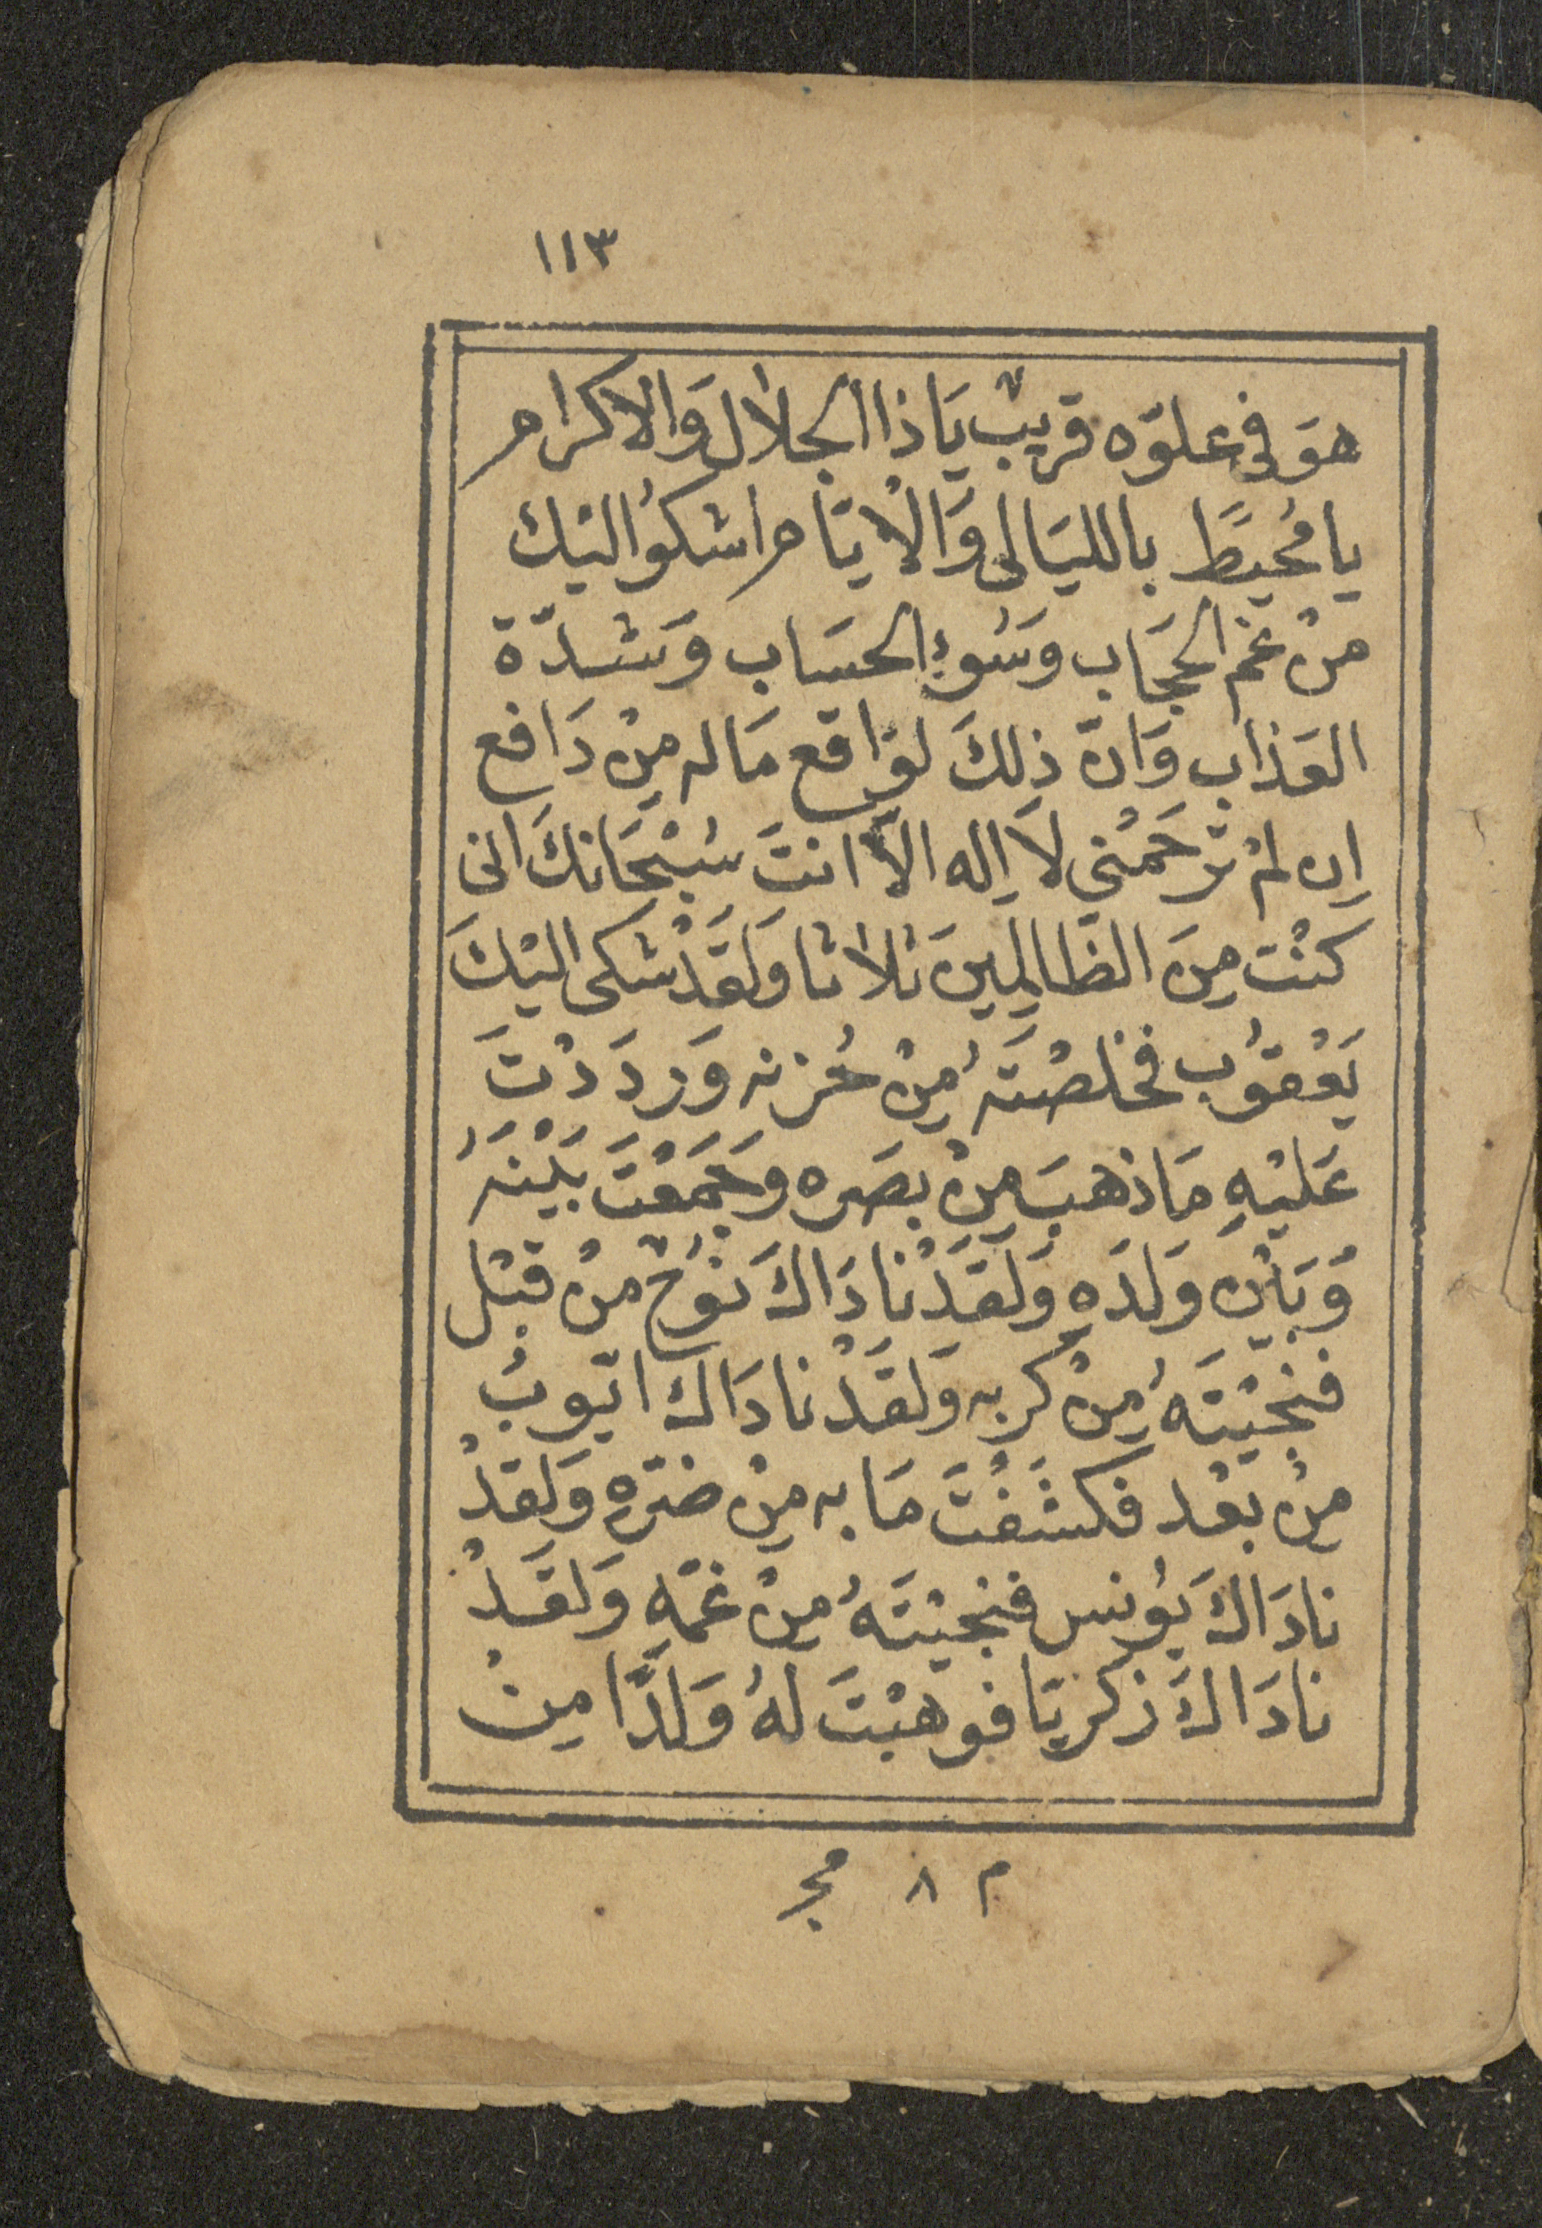 ١١٣
هوَ فى علوّه قريبٌ يَا ذا الجلال وَالاكرام
يا مُحيطًا بالليَالى وَالْايَّام اشكوُ اليْك
منْ غم الحجَاب وسُوءِ الحسَاب وَشدّة
العَذاب وَانّ ذلِكَ لوَاقع مَاله منْ دَافع
اِن لمْ تَرحَمْنِي لاَ اِله الاّ انتَ سُبْحَانكَ انى
كنْت مِنَ الظالِمِينَ ثلاثا وَلقَدْ شكى اليْكَ
يَعْقوُب فخلصْتَهُ مِنْ حُزنه وَرددْتَ
عَليْهِ مَا ذهبَ مِنْ بصَره وَجَمَعْتَ بَيْنَهُ
وَبَيْن وَلدَهِ وَلَقَدْ نادَاكَ نوُحٌ منْ قبْل
فنجيْتَهُ مِنْ كربه وَلقَدْ نادَاكَ ايّوبُ
مِنْ بَعْد فكشَفْتَ مَا به مِنْ ضرّهِ وَلقدْ
نادَاكَ يوُنس فنجيْتَهُ مِنْ غمّهِ وَلقَدْ
نادَاكَ زكريَا فوهبْتَ لهُ وَلَدًا مِنْ
م ٨ مجر